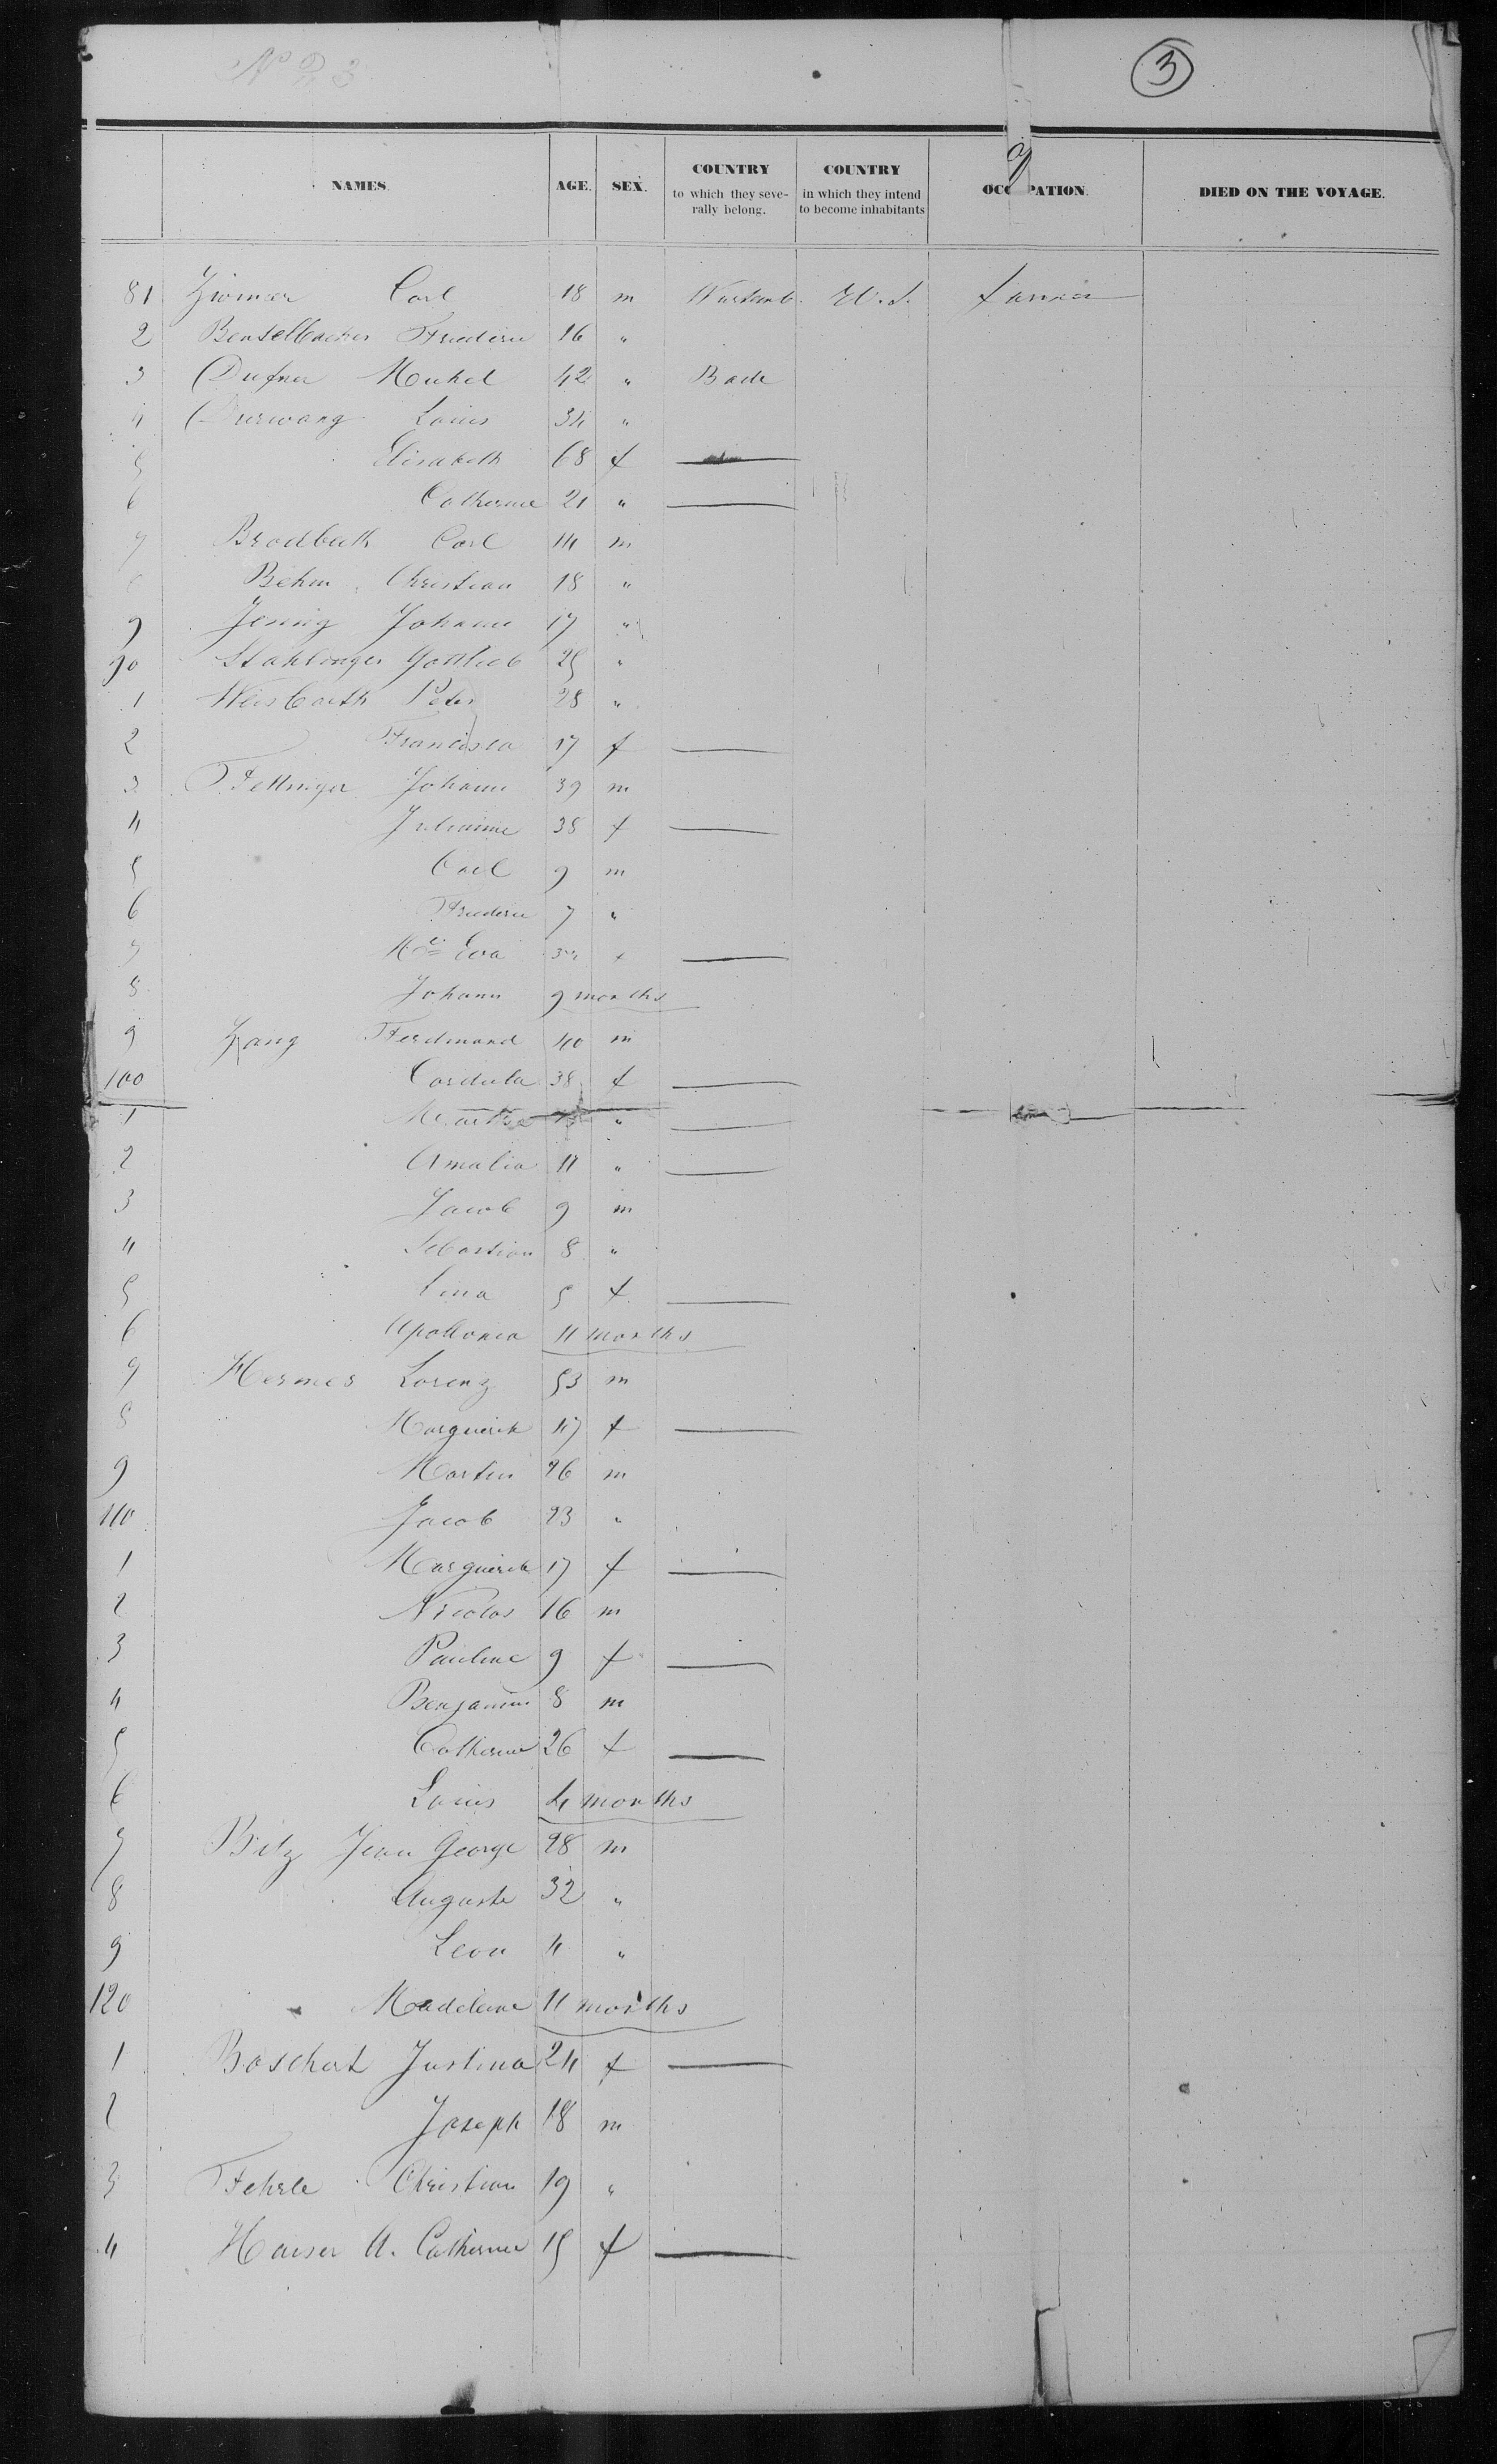 3
NAMES. AGE. SEX. COUNTRY to which they seve- rally belong. COUNTRY in which they intend to become inhabitants OCCUPATION. DIED ON THE VOYAGE.
81 Carl 18 m U.S.
2 16 "
3 Dufner Michel 42 " Bade
4 Louis 34 "
5 Elisabeth 68 f
6 Catherine 21 "
7 Brodbeck Carl 14 m
8 Behm Christian 18 "
9 Jenny Johann 17 "
90 Gottlieb 25 "
1 Peter 28 "
2 Francisca 17 f
3 Johann 39 m
4 Julianne 38 f
5 Carl 9 m
6 7 "
7 Eva
8 Johann 9 months
9 Zang Ferdinand 40 m
100 Cordula 38 f
1 Martha "
2 Amalia 11 "
3 Jacob 9 m
4 Sebastian 8 "
5 Lina 5 f
6 Apollonia 11 months
7 Hermes Lorenz 53 m
8 Marguerite 47 f
9 Martin 26 m
110 Jacob 23 "
1 Marguerite 17 f
2 Nicolas 16 m
3 Pauline 9 f
4 Benjamin 8 m
5 Catherine 26 f
6 Louis 4 months
7 Bitz Jean George 28 m
8 Auguste 32 "
9 Leon 4 "
120 Madeleine 11 months
1 Boschert Justina 24 f
2 Joseph 18 m
3 Fehrle Christian 19 "
4 A. Catherine 15 f